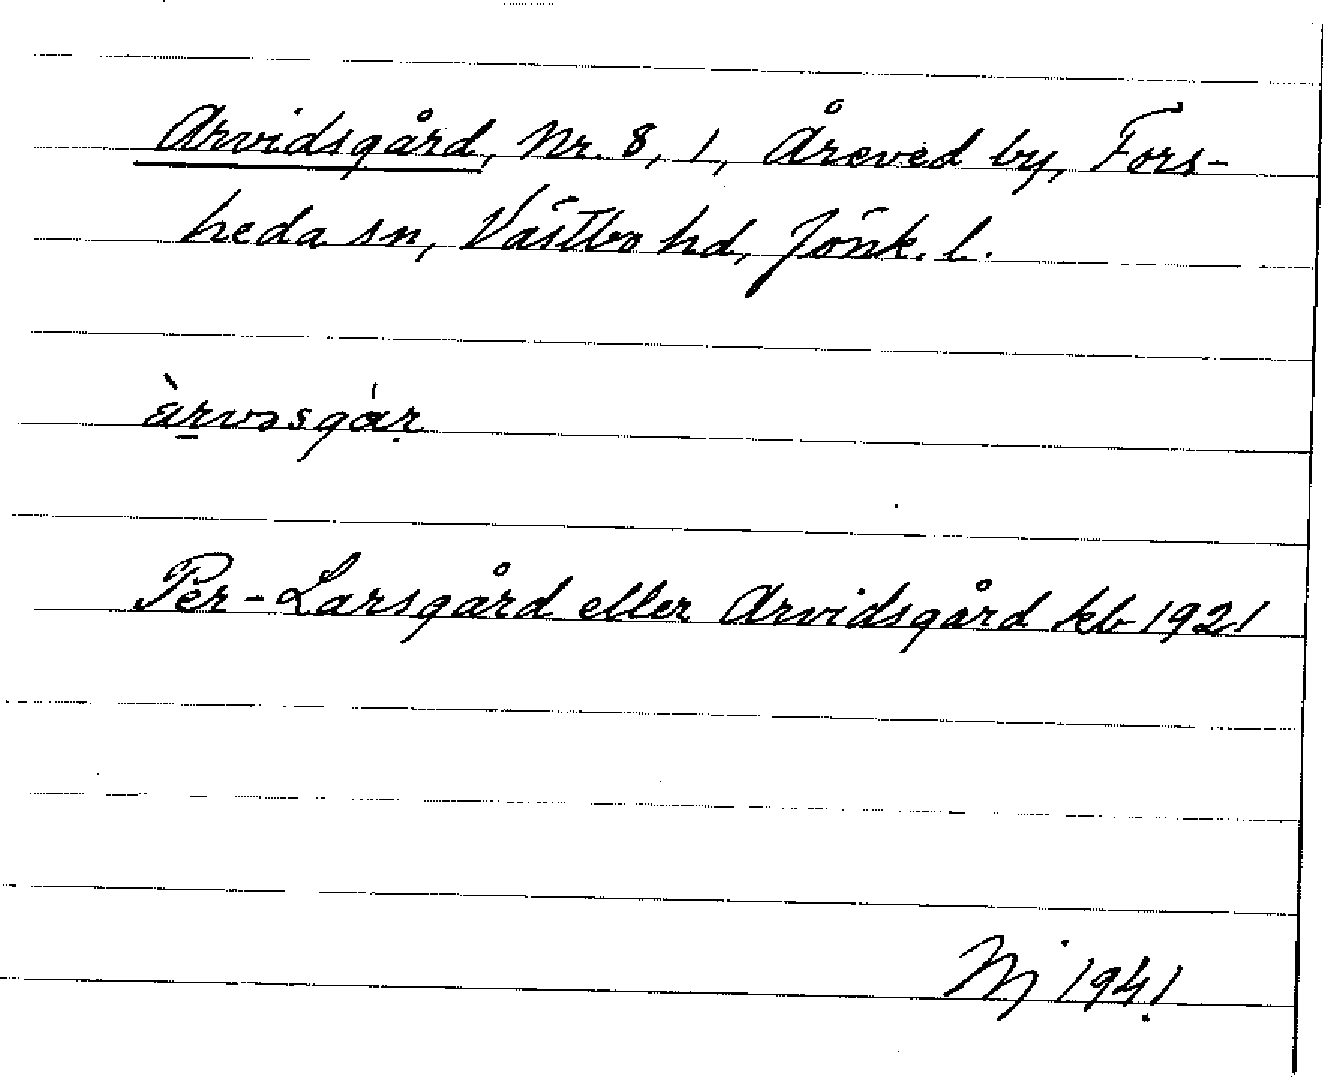 Arvidsgård, Nr. 8, 1, Åreved by, Fors-
heda sn, Västbo hd, Jönk. l.
àrvəsgár
Per-Larsgård eller Arvidsgård kb 1921
1941